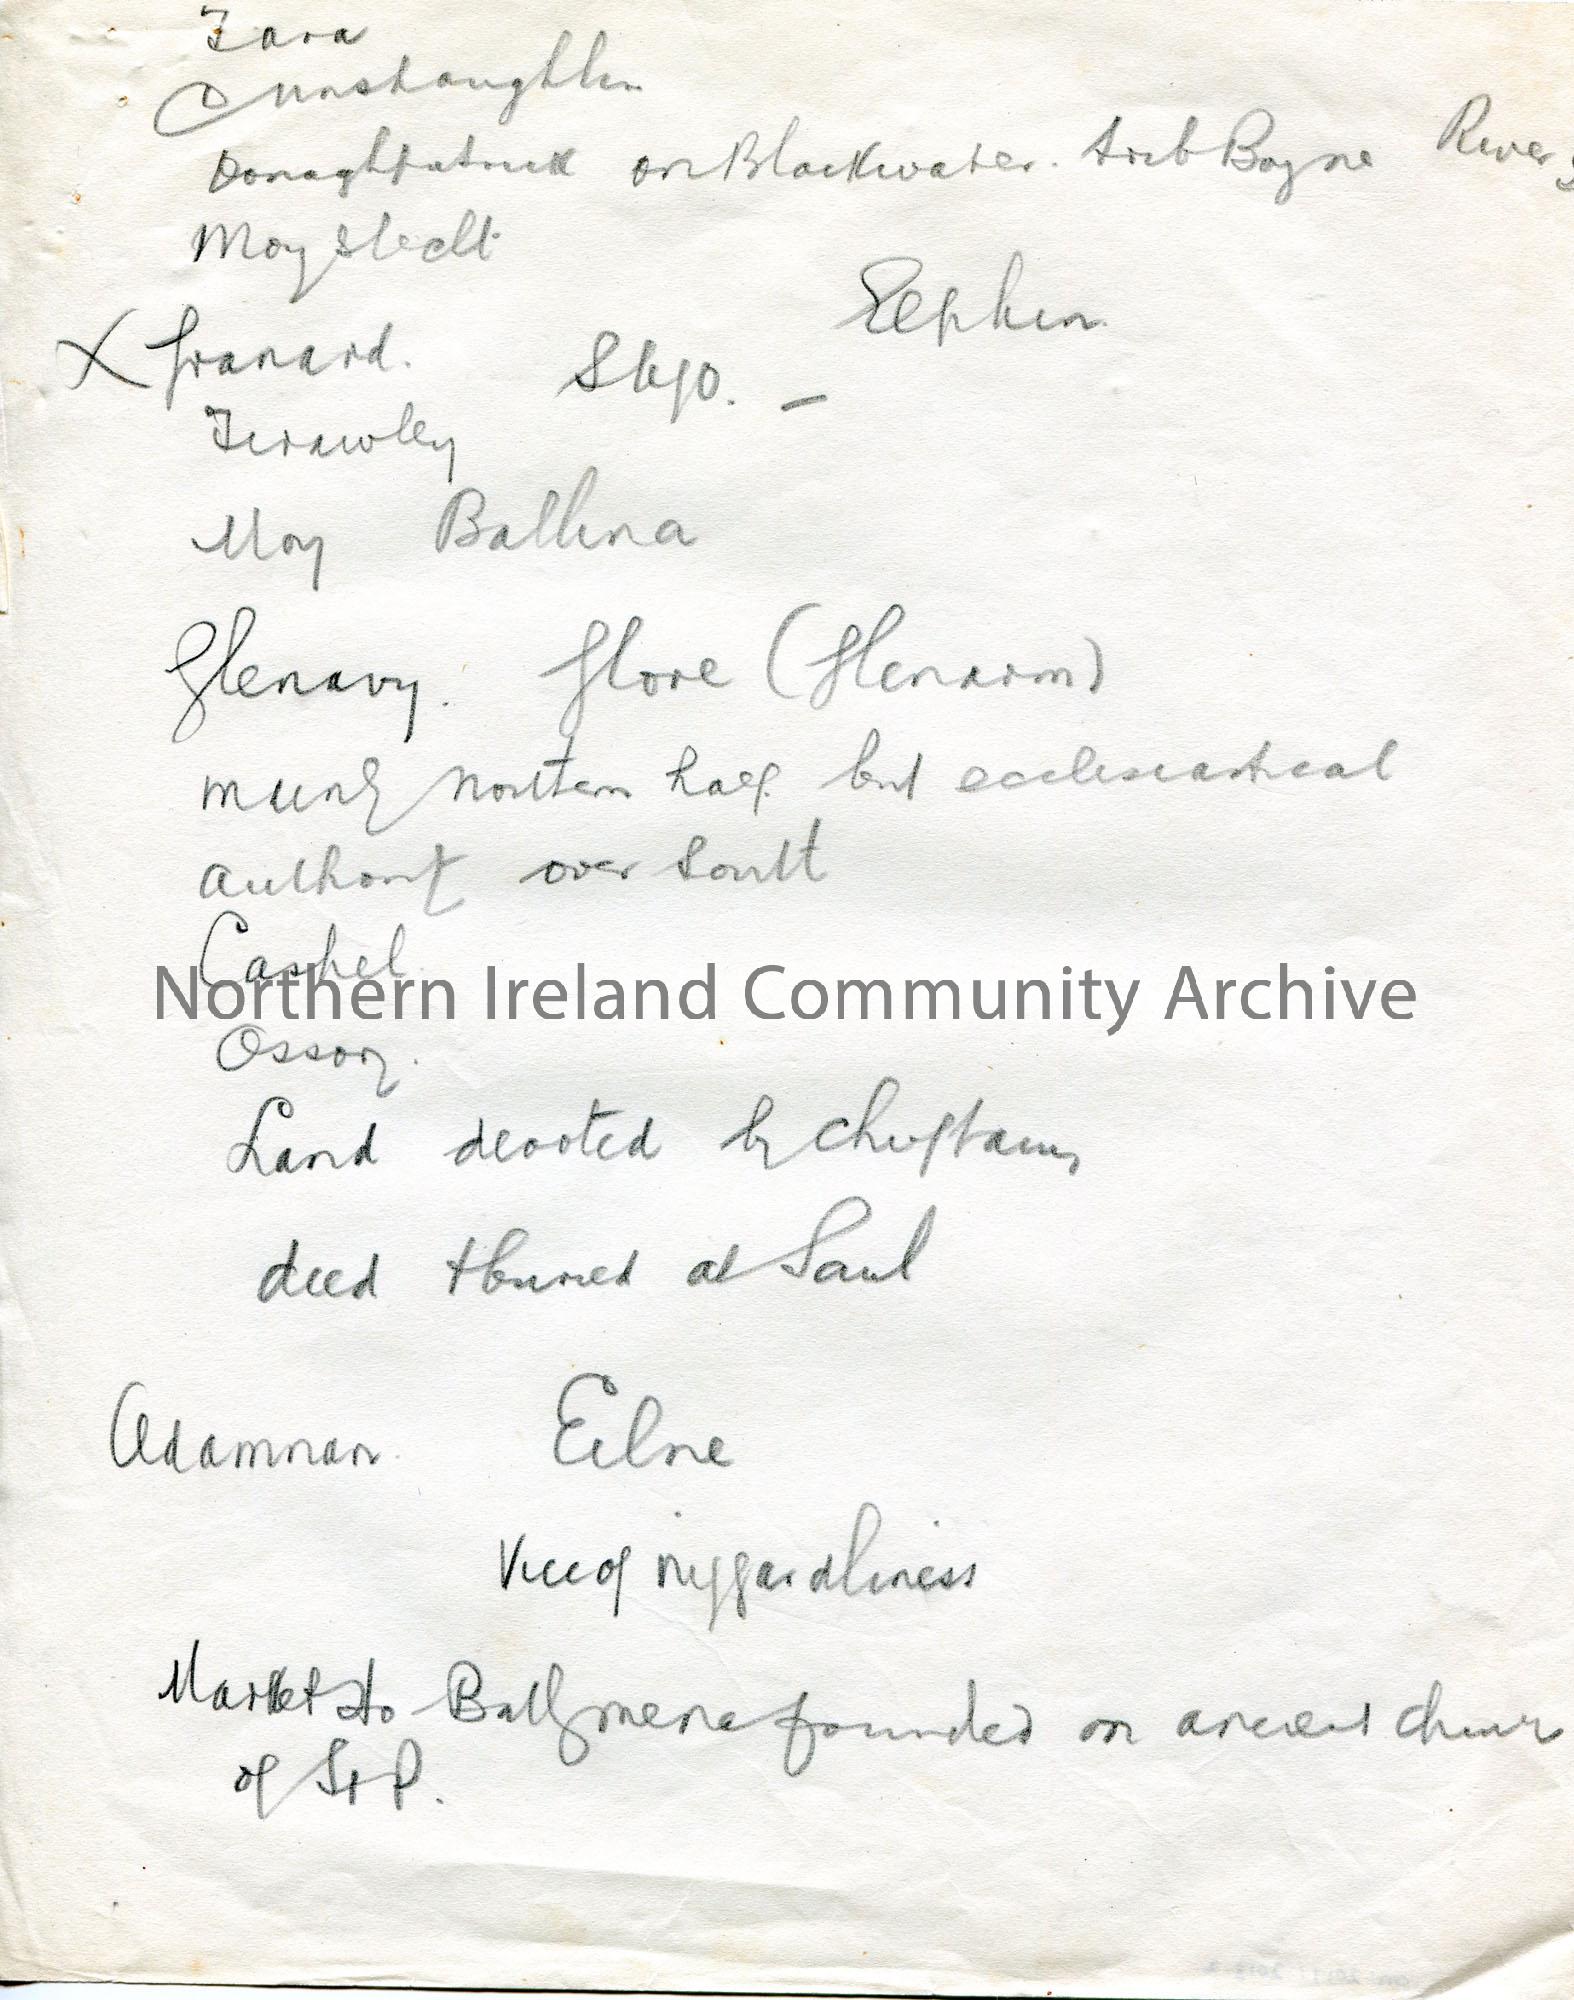 Tara
Dunshaughlin
Donaghpatrick on Blackwater. trib Boyne River
Moyslecht
X Granard. Sligo. – Elphin
Tirawley
Moy Ballina
Glenavy. Glore (Glenarm)
mainly northern half but ecclesiastical
authority over South
Cashel
Northern Ireland Community Archive
Ossory.
Land devoted by chieftains
died + buried at Saul
Adamnan. Eilne
Vice of niggardliness
Market to Ballymena founded on ancient
of St P.